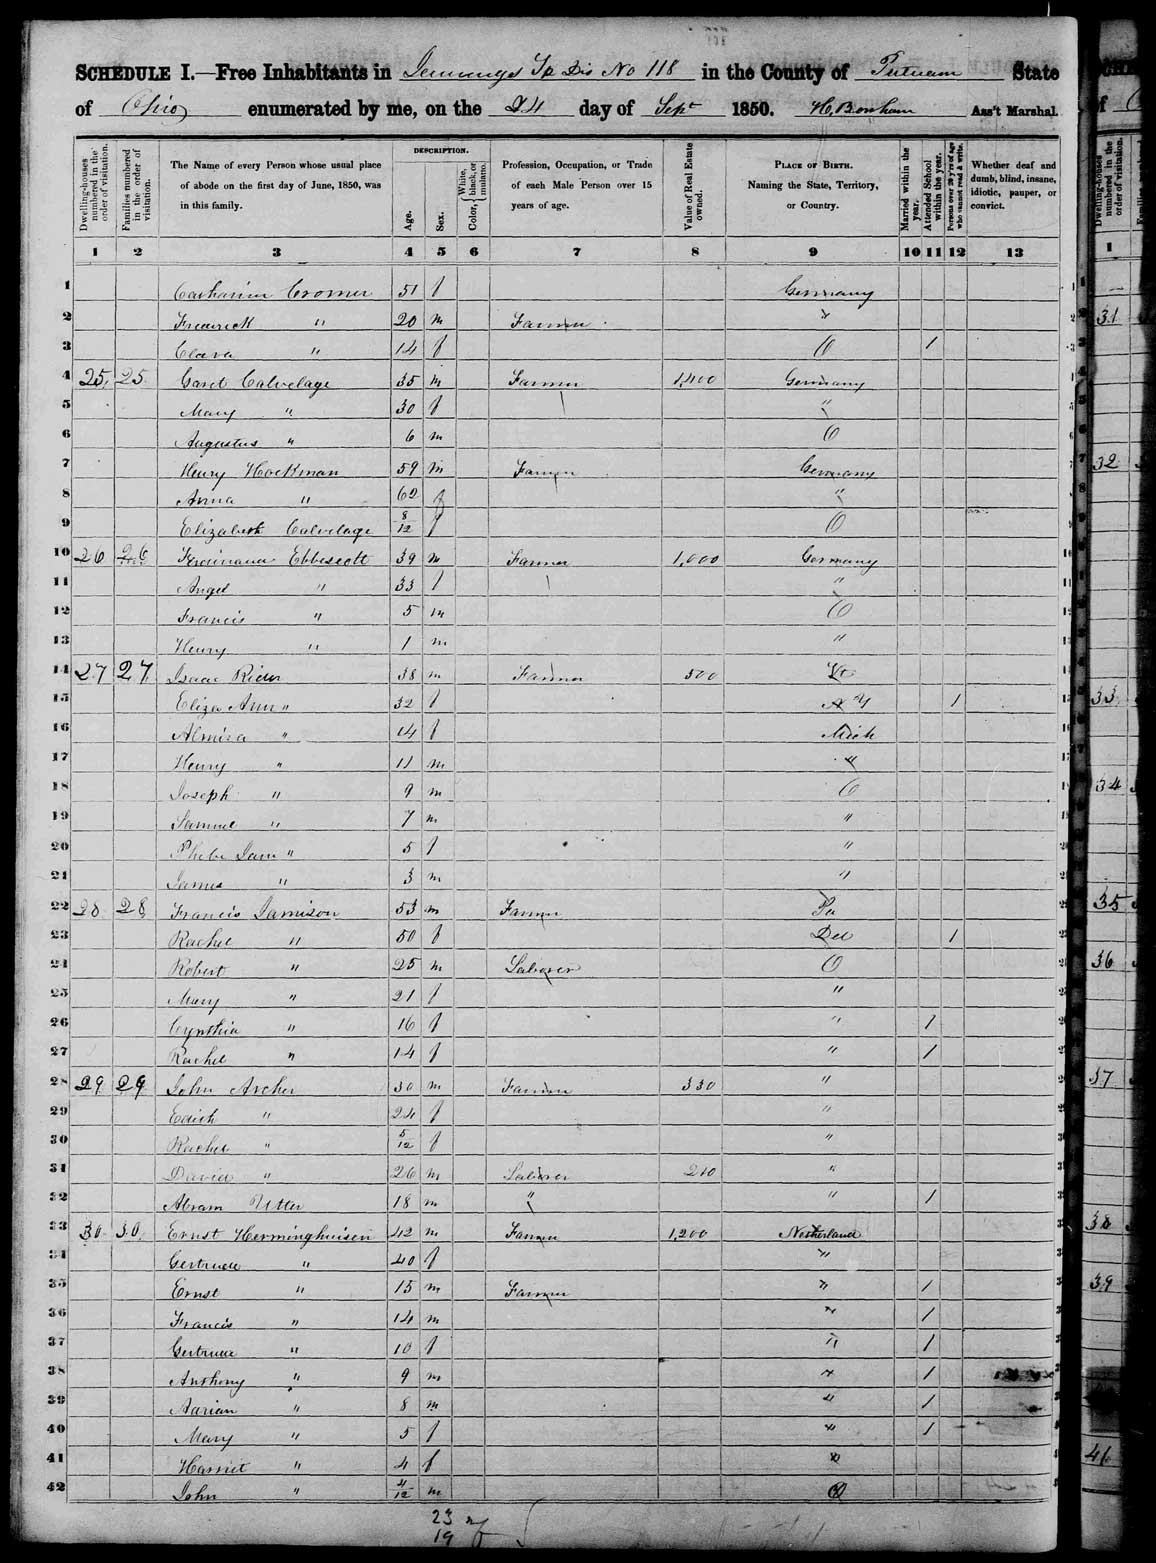 SCHEDULE I.—Free Inhabitants in Jennings Tp Dis No 118 in the County of Putnam State
of Ohio enumerated by me, on the 24 day of Sept 1850. H. Bonham Ass't Marshal.
Dwelling-houses numbered in the order of visitation.
Families numbered in the order of visitation.
The Name of every Person whose usual place of abode on the first day of June, 1850, was in this family.
DESCRIPTION.
Age.
Sex.
Color, { White, black, or mulatto.
Profession, Occupation, or Trade of each Male Person over 15 years of age.
Value of Real Estate owned.
PLACE OF BIRTH. Naming the State, Territory, or Country.
Married within the year.
Attended School within the year.
Persons over 20 y'rs of age who cannot read & write.
Whether deaf and dumb, blind, insane, idiotic, pauper, or convict.
1 2 3 4 5 6 7 8 9 10 11 12 13
1 Catharine Cromer 51 f Germany
2 Frederick " 20 m Farmer "
3 Clara " 14 f O 1
4 25 25 Garet Calvelage 35 m Farmer 1,400 Germany
5 Mary " 30 f "
6 Augustus " 6 m O
7 Henry Hockman 59 m Farmer Germany
8 Anna " 62 f "
9 Elizabeth Calvelage 8/12 f O
10 26 26 Ferdinand Ebbescott 39 m Farmer 1,000 Germany
11 Angel " 33 f "
12 Francis " 5 m O
13 Henry " 1 m "
14 27 27 Isaac 38 m Farmer 500
15 Eliza Ann " 32 f N Y 1
16 Almira " 14 f Mich
17 Henry " 11 m "
18 Joseph " 9 m O
19 Samuel " 7 m "
20 Phebe Jane " 5 f "
21 James " 3 m "
22 28 28 Francis Jamison 53 m Farmer Pa
23 Rachel " 50 f Del 1
24 Robert " 25 m Laborer O
25 Mary " 21 f "
26 Cynthia " 16 f " 1
27 Rachel " 14 f " 1
28 29 29 John Archer 30 m Farmer 330 "
29 Edith " 24 f "
30 Rachel " 5/12 f "
31 David " 26 m Laborer 210 "
32 Abram Utter 18 m " " 1
33 30 30 Ernst Herminghuisen 42 m Farmer 1,200 Netherland
34 Gertrude " 40 f "
35 Ernst " 15 m Farmer " 1
36 Francis " 14 m " 1
37 Gertrude " 10 f " 1
38 Anthony " 9 m " 1
39 Adrian " 8 m " 1
40 Mary " 5 f " 1
41 Harriet " 4 f "
42 John " 4/12 m O
23 m
19 f
1
31
32
33
34
35
36
37
38
39